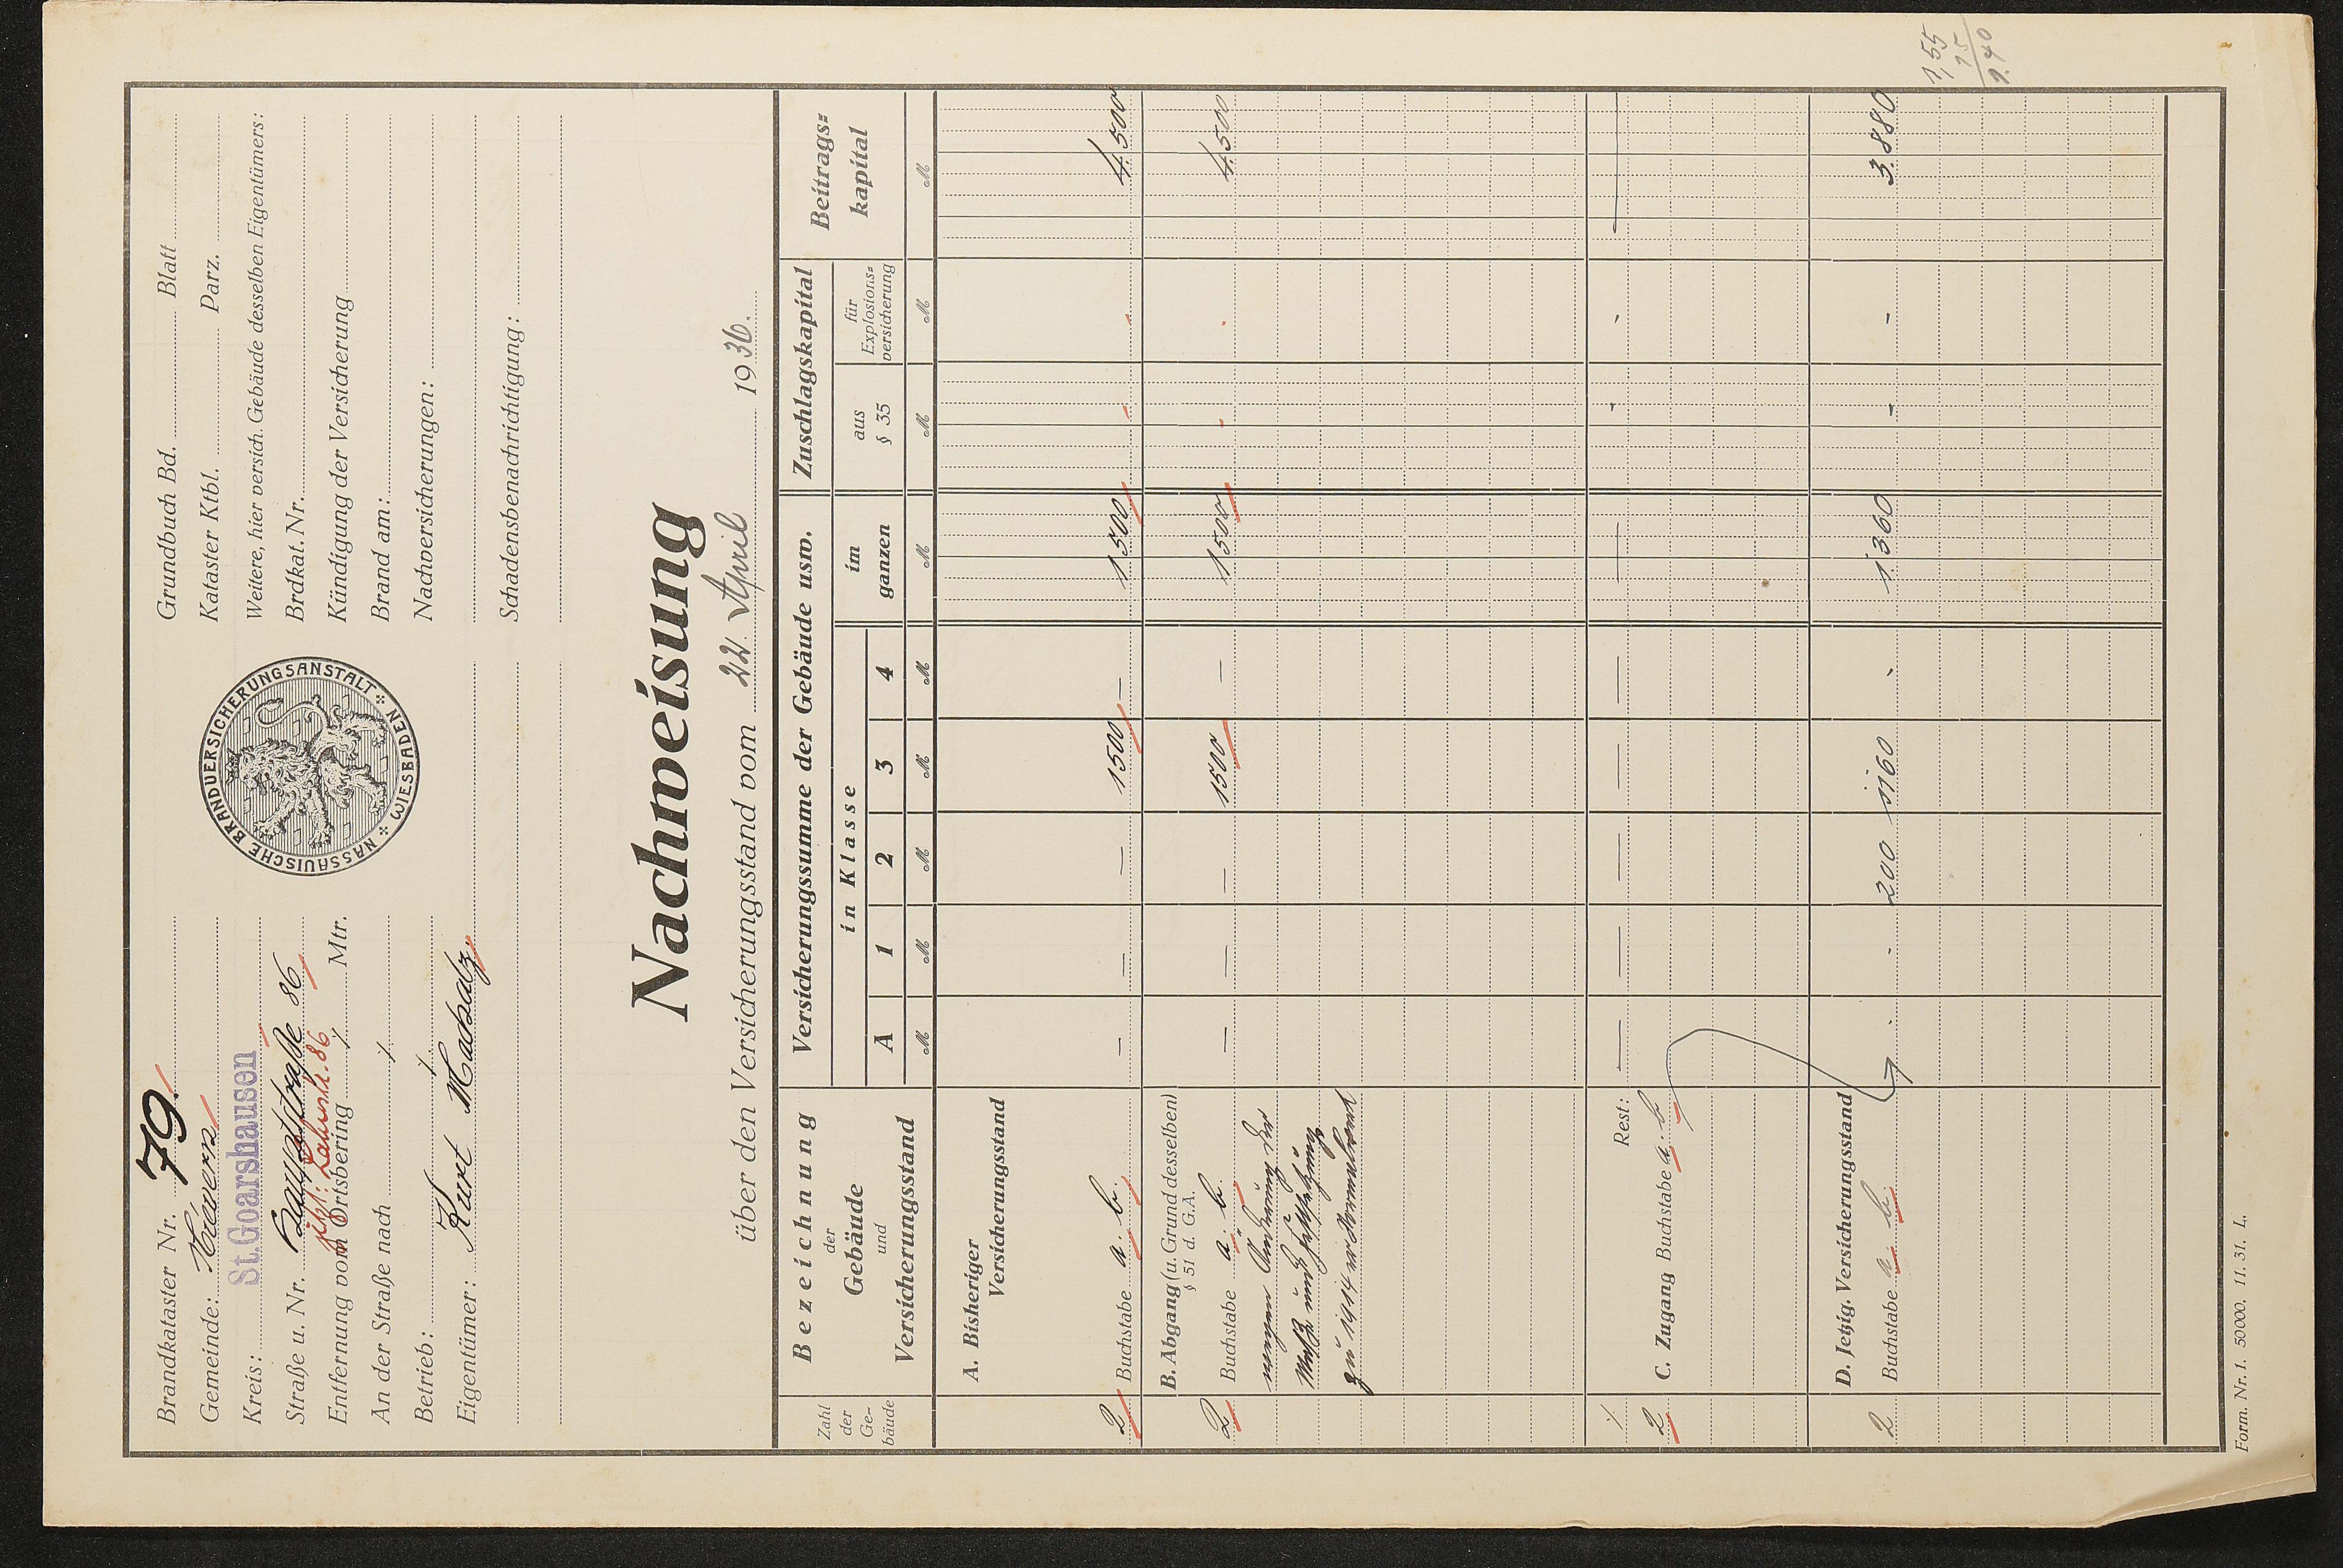 Brandkataster Nr. 79.
Gemeinde: Kievern
Kreis: St. Goarshausen
Straße u. Nr. Hauptstraße 86
jetzt: Lahnstr. 86
Entfernung vom Ortsbering ⁒ Mtr.
An der Straße nach ⁒
Betrieb: ⁒
Eigentümer: Kurt
NASSAUISCHE BRANDVERSICHERUNGSANSTALT
WIESBADEN
Grundbuch Bd. Blatt
Kataster Ktbl. Parz.
Weitere, hier versich. Gebäude desselben Eigentümers:
Brdkat. Nr.
Kündigung der Versicherung
Brand am:
Nachversicherungen:
Schadensbenachrichtigung:
Nachweisung
über den Versicherungsstand vom 22. April 1936.
Zahl der Ge-bäude
Bezeichnung
der
Gebäude
und
Versicherungsstand
Versicherungssumme der Gebäude usw.
in Klasse
A 1 2 3 4
im ganzen
Zuschlagskapital
aus § 35
für Explosions-versicherung
Beitrags-kapital
M M M M M M M M M
A. Bisheriger
Versicherungsstand
2 Buchstabe a. b. — — — 1500 — 1500 - - 4.500
B. Abgang (u. Grund desselben)
§ 51 d. G.A.
2 Buchstabe a. b. — — — 1500 — 1500 - - 4.500
wegen Änderung der
und
zu 1914er
⁒ Rest: — — — — — — - - —
2 C. Zugang Buchstabe a. b.
D. Jetzig. Versicherungsstand
2 Buchstabe a. b. - - 200 1160 - 1.360 - - 3.880
1,55
Form. Nr. 1. 5000. 11. 31. L.